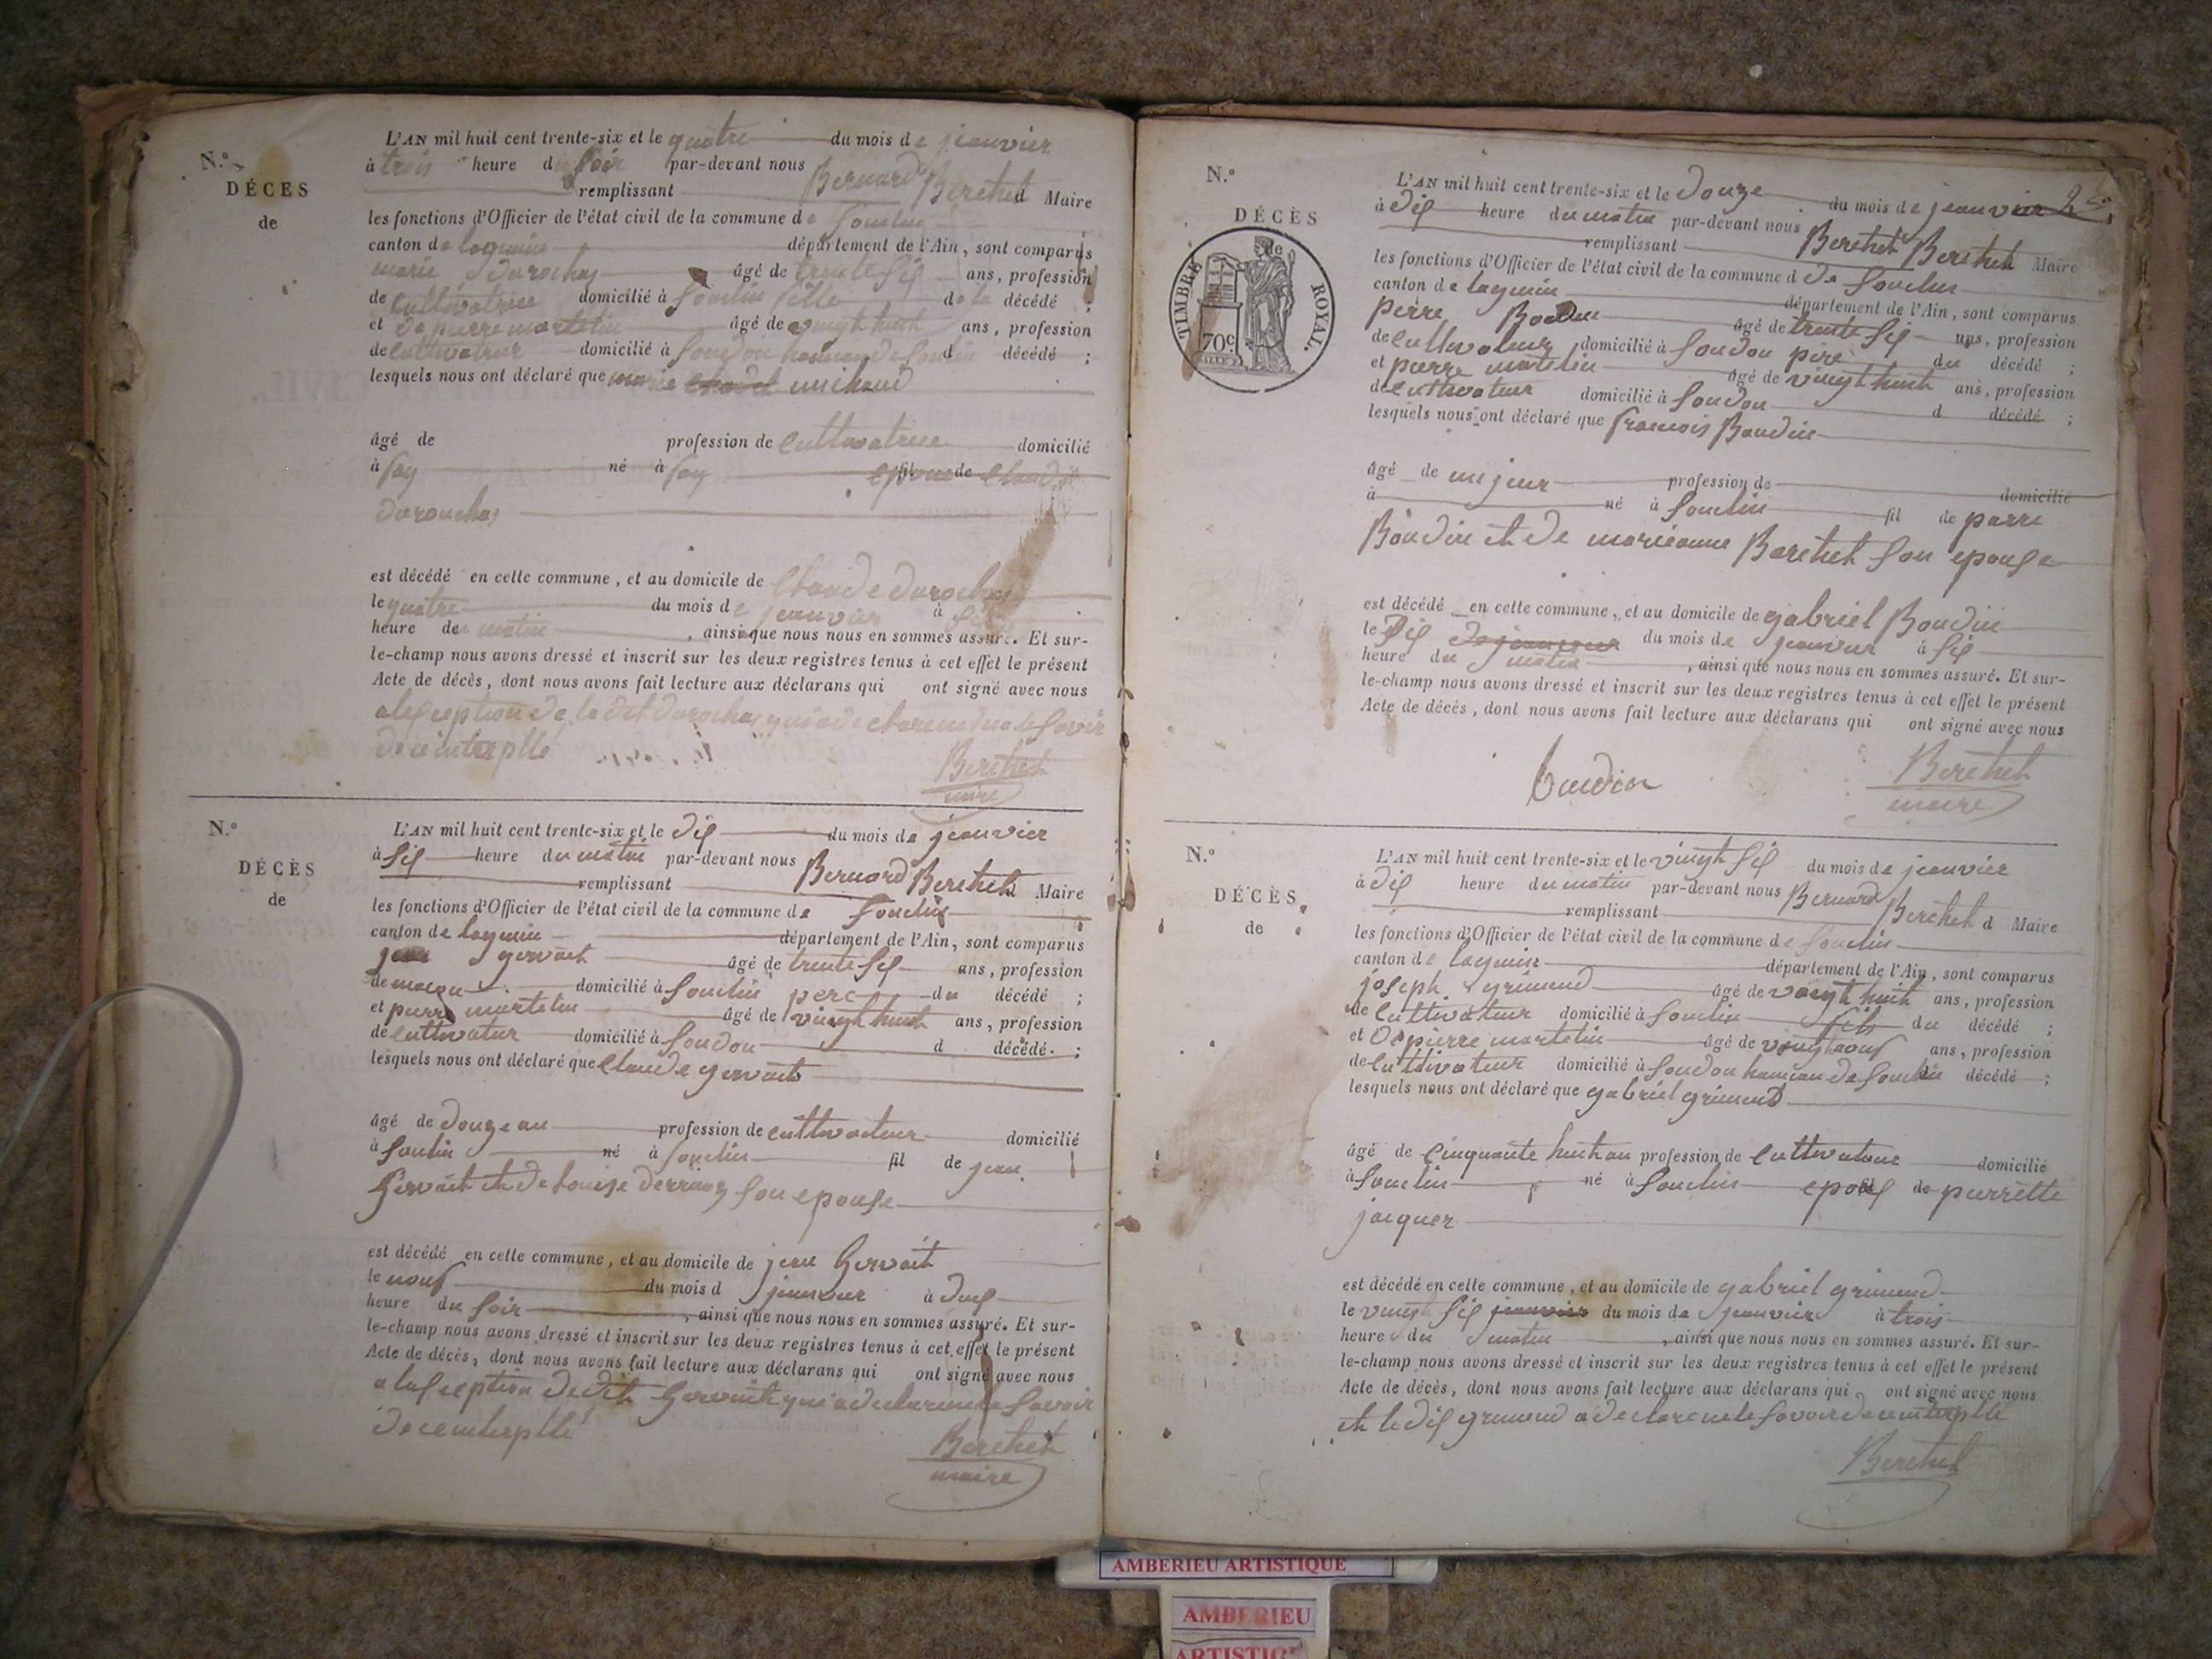 N.º
DÉCES
de
L'AN mil huit cent trente-six et le quatre du mois de jeanvier
à trois heure du soir par-devant nous Bernard Berthet
remplissant d Maire
les fonctions d'Officier de l'état civil de la commune de Souclin
canton de lagnuin département de l'Ain, sont comparus
marie durochas âgé de trente six ans, profession
de cultivatrice domicilié à Souclin fille de la décédé ;
et de pierre martelin âgé de vingt huit ans, profession
de cultivateur domicilié à Soudon hameau de Souclin d décédé ;
lesquels nous ont déclaré que marie michaud
âgé de profession de cultivatrice domicilié
à Say né à Say epouse de Claude
durouchas
est décédé en cette commune, et au domicile de Claude durochas
le quatre du mois de jeanvier à
heure de matin , ainsi que nous nous en sommes assuré. Et sur-
le-champ nous avons dressé et inscrit sur les deux registres tenus à cet effet le présent
Acte de décès, dont nous avons fait lecture aux déclarans qui ont signé avec nous
a lexception de la dit durochas qui a declare ne le savoir
de ce interpllé
Berthet
maire
N.º
DÉCÈS
de
L'AN mil huit cent trente-six et le dix du mois de jeanvier
à six heure du matin par-devant nous Bernard Berthet
remplissant d Maire
les fonctions d'Officier de l'état civil de la commune de Souclin
canton de lagnuin département de l'Ain, sont comparus
jean gervait âgé de trente six ans, profession
de macon domicilié à Souclin pere du décédé ;
et pierre martelin âgé de vingt huit ans, profession
de cultivatur domicilié à Soudon d décédé ;
lesquels nous ont déclaré que Claude gervait
âgé de douze an profession de cultivateur domicilié
à Souclin né à Souclin fil de jean
Gervait et de Louise derruaz son epouse
est décédé en cette commune, et au domicile de jean Gervait
le nouf du mois d jeanvier à
heure du soir , ainsi que nous nous en sommes assuré. Et sur-
le-champ nous avons dressé et inscrit sur les deux registres tenus à cet effet le présent
Acte de décès, dont nous avons fait lecture aux déclarans qui ont signé avec nous
a lexception dudit Gervait qui a declare ne le savoir
de ce interpllé
Berthet
maire
N.º
DÉCÈS
de
TIMBRE ROYAL.
70c
L'AN mil huit cent trente-six et le douze du mois de jeanvier
à dix heure du matin par-devant nous Berthet Berthet
remplissant Maire
les fonctions d'Officier de l'état civil de la commune d de Souclin
canton de lagnuin département de l'Ain, sont comparus
pierre Boudin âgé de trente six ans, profession
de cultivateur domicilié à Soudon père du décédé ;
et pierre martelin âgé de vingt huit ans, profession
de cultivateur domicilié à Soudon d décédé ;
lesquels nous ont déclaré que francois Boudin
âgé de un jour profession de domicilié
à né à Souclin fil de pierre
Boudin et de marieanne Berthet son epouse
est décédé en cette commune, et au domicile de gabriel Boudin
le dix du mois de jeanvier à six
heure du matin , ainsi que nous nous en sommes assuré. Et sur-
le-champ nous avons dressé et inscrit sur les deux registres tenus à cet effet le présent
Acte de décès, dont nous avons fait lecture aux déclarans qui ont signé avec nous
boudin Berthet
maire
N.º
DÉCÈS
de
L'AN mil huit cent trente-six et le vingt six du mois de jeanvier
à dix heure du matin par-devant nous Bernard Berthet
remplissant d Maire
les fonctions d'Officier de l'état civil de la commune de Souclin
canton de lagnuin département de l'Ain, sont comparus
joseph grimend âgé de vingt huit ans, profession
de cultivateur domicilié à Souclin fils du décédé ;
et de pierre martelin âgé de vingt nouf ans, profession
de cultivateur domicilié à Soudon hameau de Souclin décédé ;
lesquels nous ont déclaré que gabriel grimend
âgé de Cinquante huit an profession de cultivateur domicilié
à Souclin né à Souclin epoux de pierrette
jacquer
est décédé en cette commune, et au domicile de gabriel grimend
le vingt six jeanvier du mois de jeanvier à trois
heure du matin , ainsi que nous nous en sommes assuré. Et sur-
le-champ nous avons dressé et inscrit sur les deux registres tenus à cet effet le présent
Acte de décès, dont nous avons fait lecture aux déclarans qui ont signé avec nous
et le dit grimend a declare ne le savoir de ce interpllé
Berthet
AMBERIEU ARTISTIQUE
AMBERIEU
ARTISTIQUE